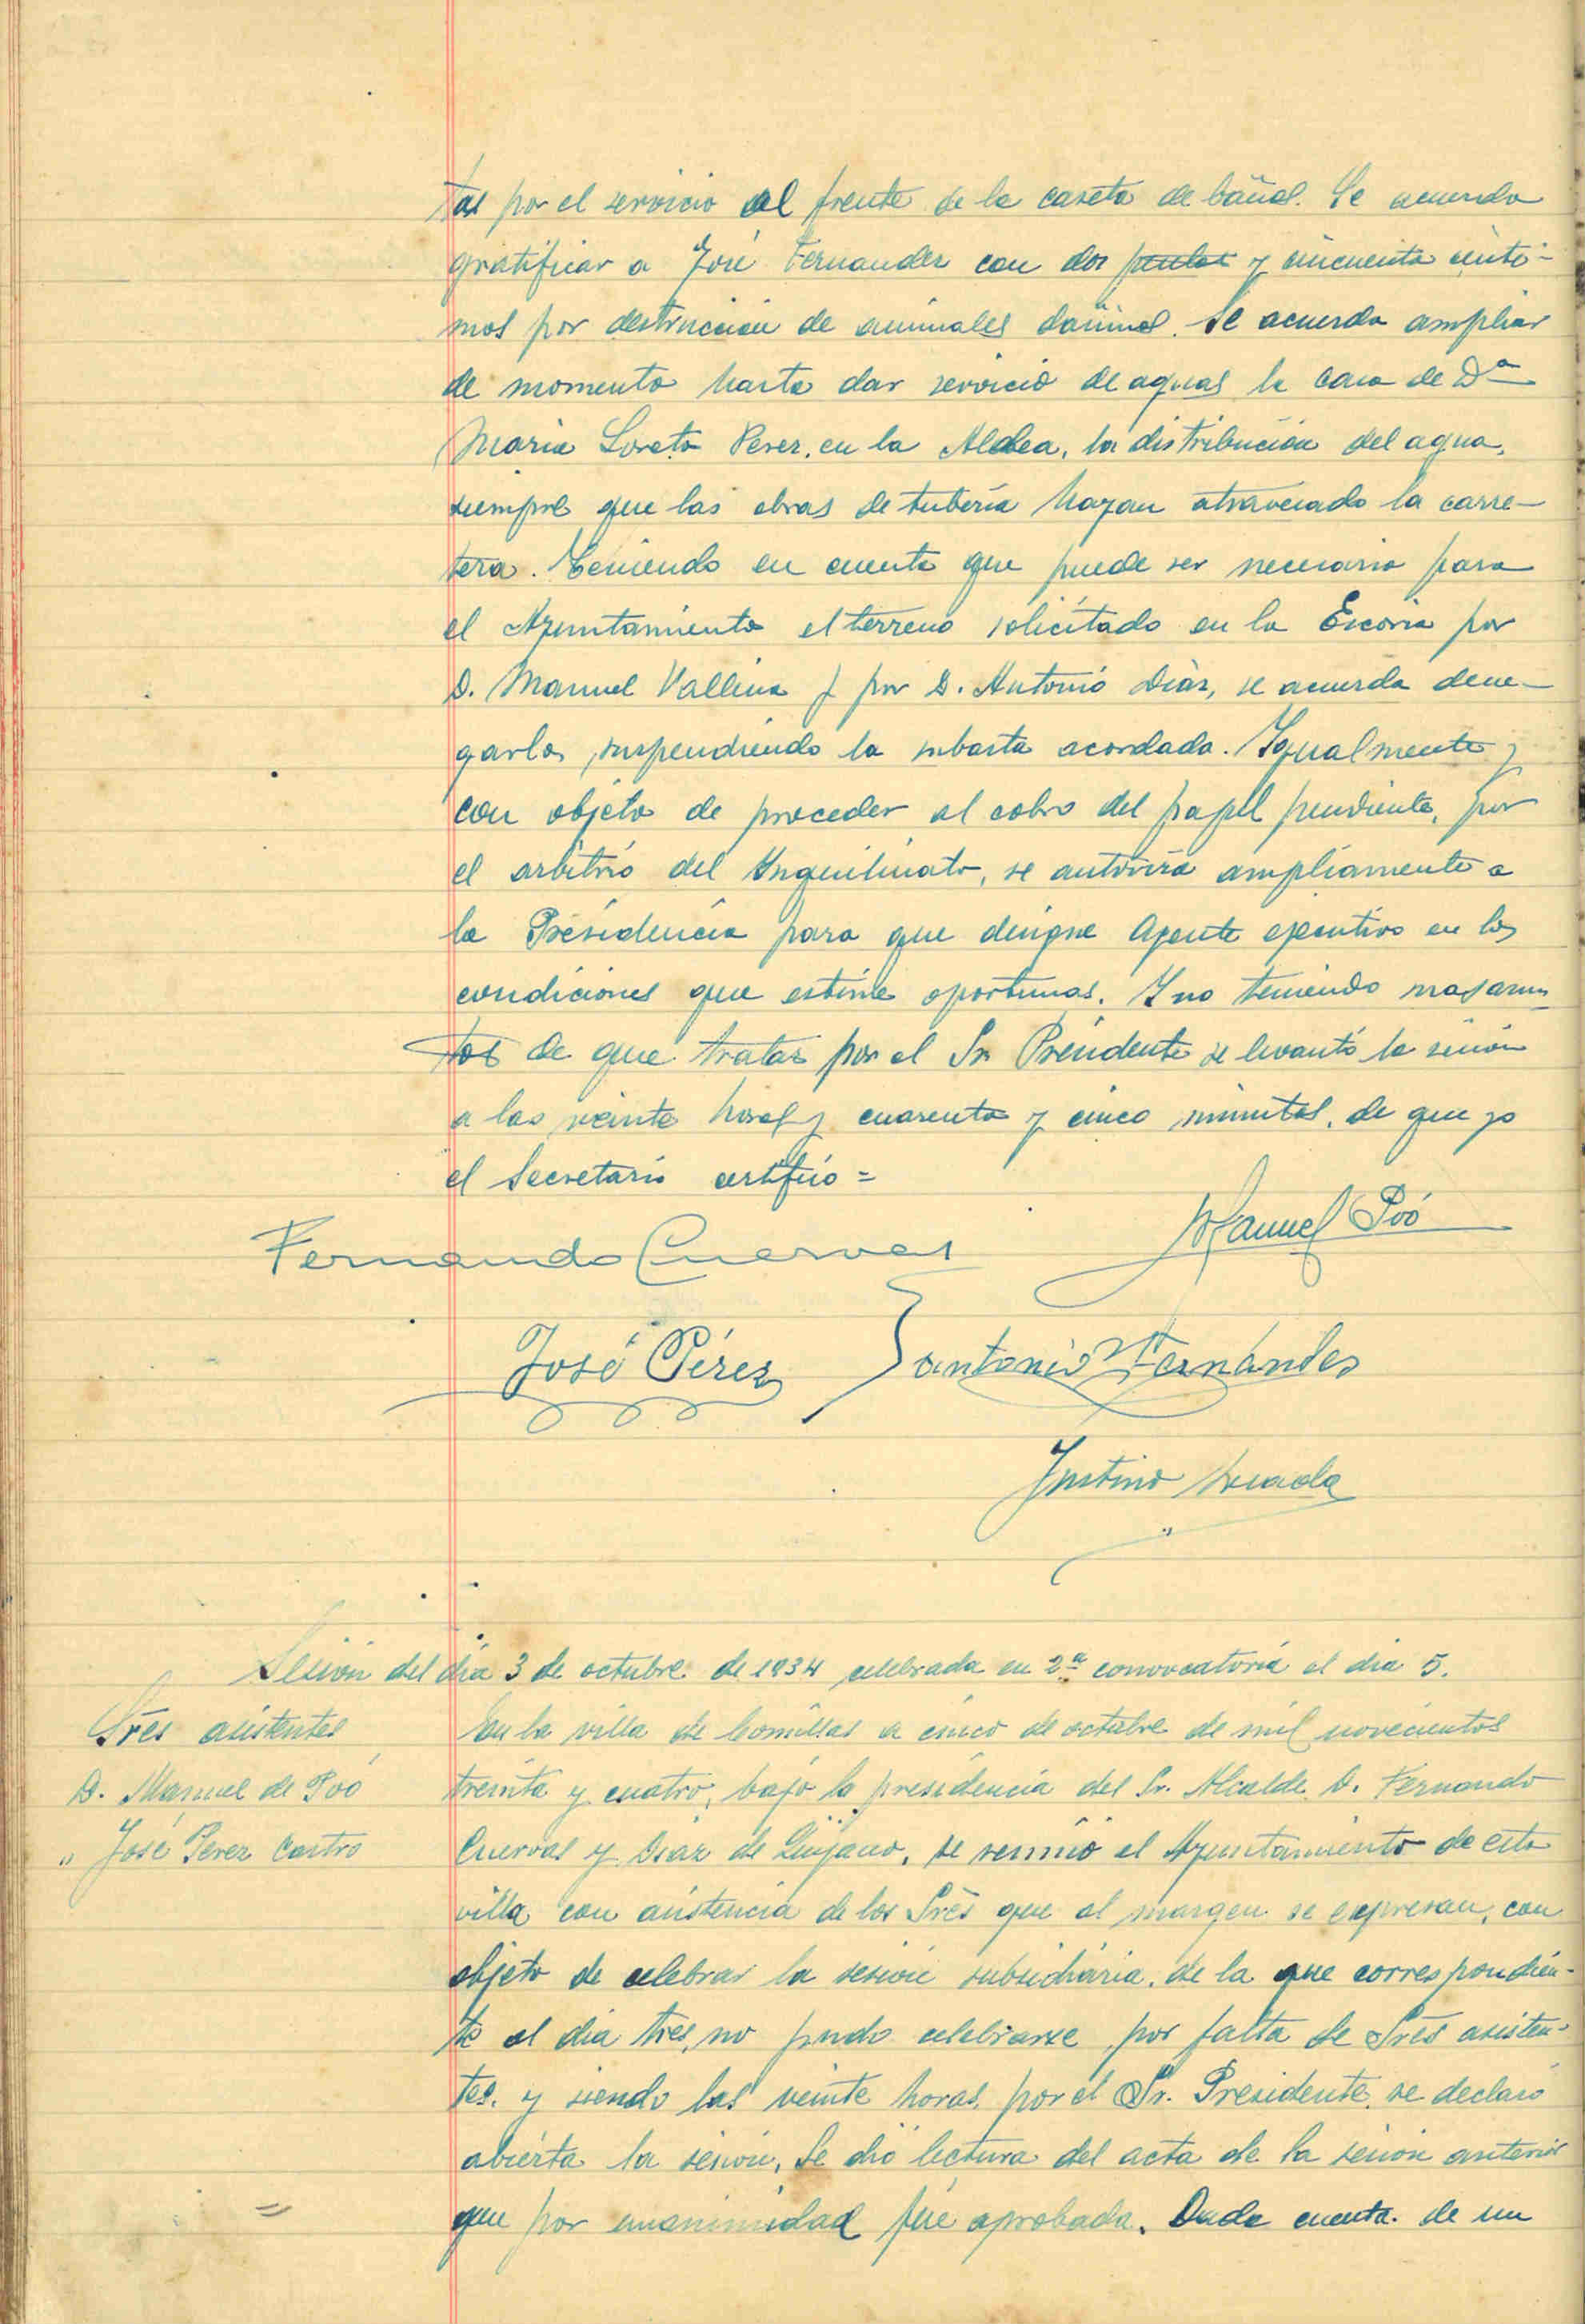 tas por el servicio al frente de la caseta de baños. Se acuerda
gratificar a José Fernandez con dos pesetas y cincuenta cénti-
mos por destrucción de animales dañinos. Se acuerda ampliar
de momento hasta dar servicio de aguas la casa de Dª
Maria Loreto Perez, en la Aldea, la distribución del agua,
siempre que las obras de tubería hayan atravesado la carre-
tera. Teniendo en cuenta que puede ser necesario para
el Ayuntamiento el terreno solicitado en la Escoria por
D. Manuel Vallina y por D. Antonio Diaz, se acuerda dene-
garlos, suspendiendo la subasta acordada. Igualmente y
con objeto de proceder al cobro del papel pendiente, por
el arbitrio del Inquilinato, se autoriza ampliamente a
la Presidencia para que designe Agente ejecutivo en las
condiciones que estime oportunas. Y no teniendo mas asun-
tos de que tratar por el Sr Presidente se levantó la sesión
a las veinte horas y cuarenta y cinco minutos, de que yo
el Secretario certifico =
Manuel Poó
Fernando Cuervas
José Pérez Santonio Fernández
Justino
Sesión del dia 3 de octubre de 1934 celebrada en 2ª convocatoria el dia 5.
Sres asistentes
D. Manuel de Poó
" José Perez Castro
En la villa de Comillas a cinco de octubre de mil novecientos
treinta y cuatro, bajo la presidencia del Sr. Alcalde D. Fernando
Cuervas y Diaz de Quijano, se reunió el Ayuntamiento de esta
villa con asistencia de los Sres que al margen se expresan, con
objeto de celebrar la sesión subsidiaria, de la que correspondien-
te al dia tres, no pudo celebrarse por falta de Sres asisten-
tes, y siendo las veinte horas, por el Sr. Presidente, se declaró
abierta la sesión, Se dió lectura del acta de la sesion anterior
que por unanimidad fué aprobada. Dada cuenta de un